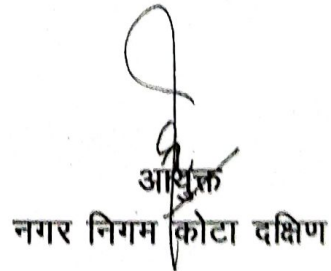 आयुक्त
नगर निगम कोटा दक्षिण